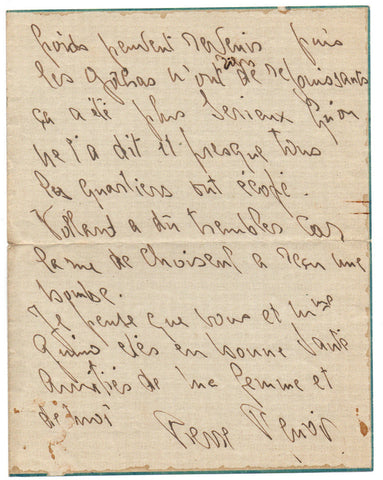 froids peuvent revenir puis
les Gothas n'ont rien de rejouissants
ça a été plus serieux qu'on
ne l'a dit et presque tous
les quartiers ont écopé.
Vollard a dû trembler car
la rue de Choiseul a reçu une
bombe.
Je pense que vous et Mme
êtes en bonne santé
amitiés de ma femme et
de moi
Renoir